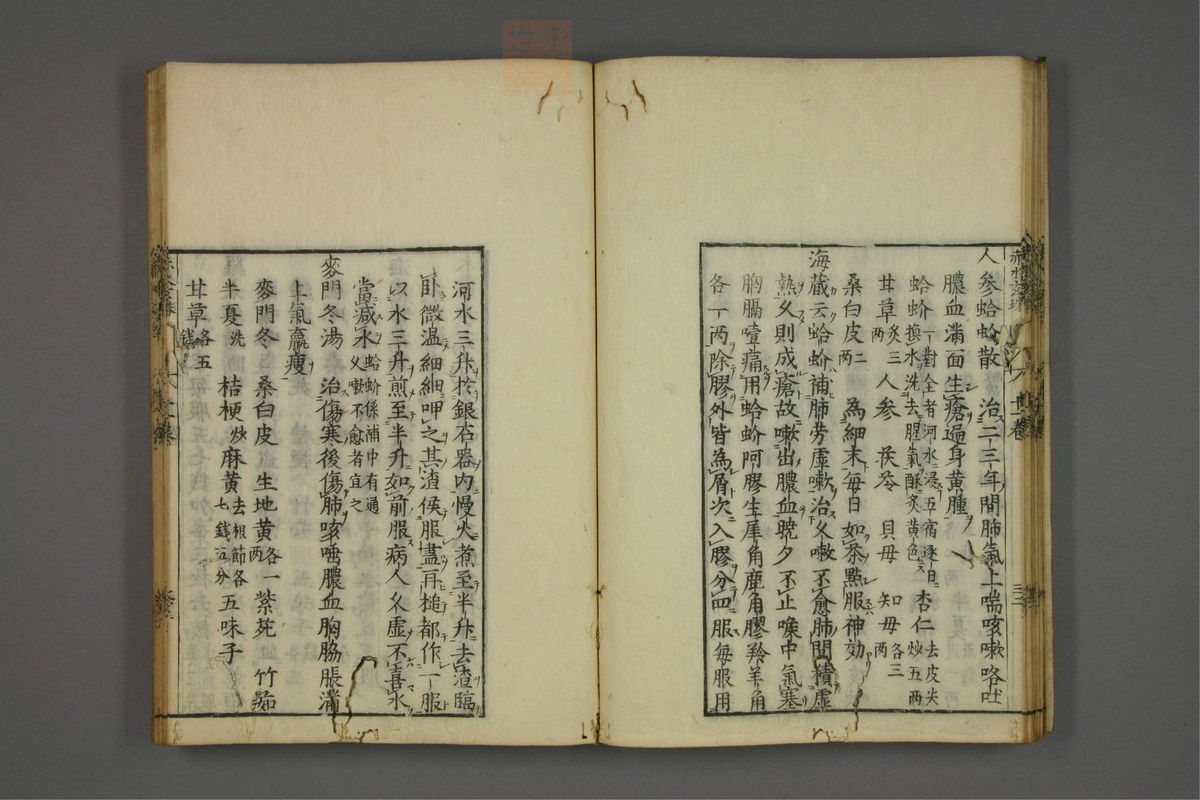 人参蛤蚧散 治二三年間肺氣上喘咳嗽咯吐
膿血滿面生瘡遍身黃腫
蛤蚧 一對全者河水浸五宿逐日換水洗去腥氣酥炙黃色 杏仁 去皮尖炒五兩
甘草 炙三兩 人参 茯苓 貝母 知母 各三兩
桑白皮 二兩 為細末每日如茶點服神効
海藏云蛤蚧補肺勞虛嗽治久嗽不愈肺間積虛
熱久則成瘡故嗽出膿血曉夕不止喉中氣塞
胸膈噎痛用蛤蚧阿膠生犀角鹿角膠羚羊角
各一两除膠外皆為屑次入膠分四服每服用
河水三升於銀石器内慢火煮至半升去渣臨
卧微温細細呷之其渣候服盡再槌都作一服
以水三升煎至半升如前服病人久虛不喜水
當減水 蛤蚧係補中有通久嗽不愈者宜之
麥門冬湯 治傷寒後傷肺咳唾膿血胸脇脹滿
上氣羸瘦
麥門冬 桑白皮 生地黃 各一兩 紫苑 竹茹
半夏 洗 桔梗 炒 麻黃 去根節各七錢五分 五味子
甘草 各五錢